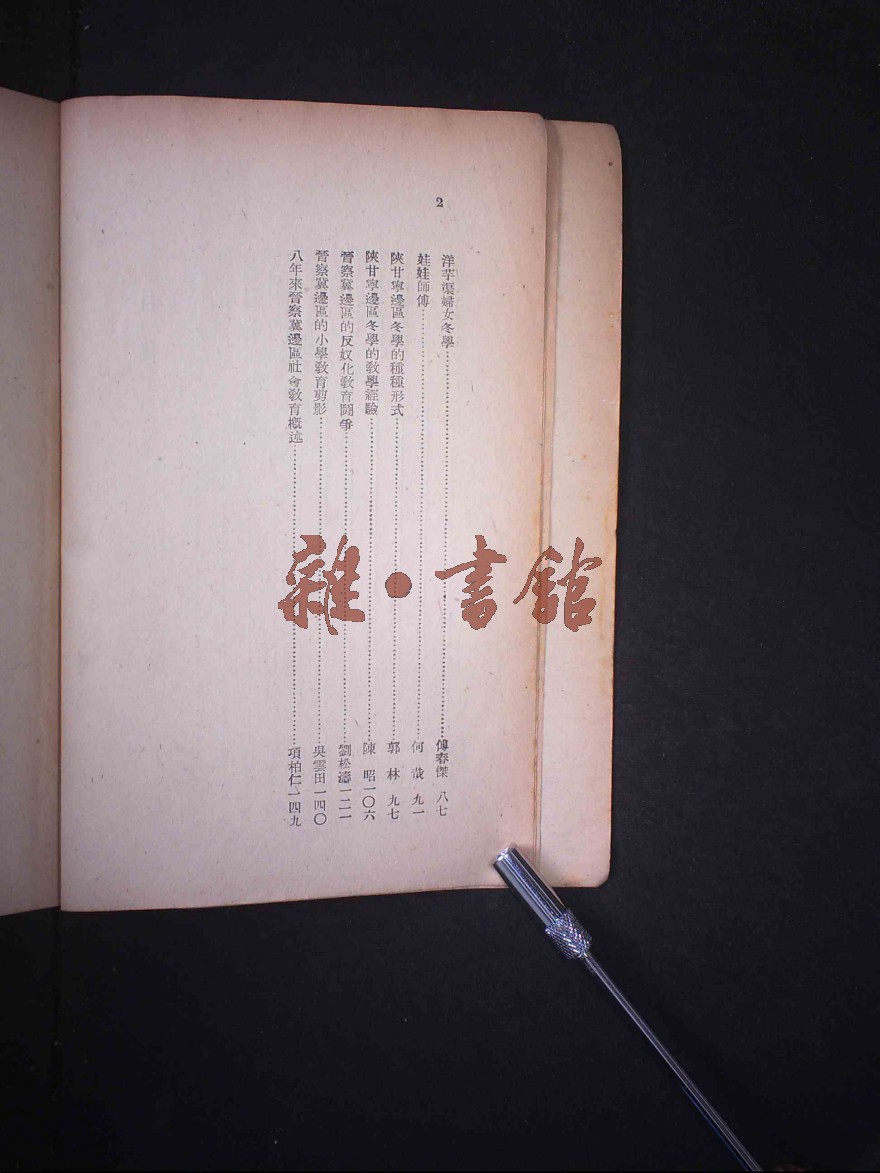 2
洋芋渠婦女冬學……傅春傑 八七
娃娃師傅……何 哉 九一
陝甘寧邊區冬學的種種形式……郭 林 九七
陝甘寧邊區冬學的敎學經驗……陳 昭一〇六
晉察冀邊區的反奴化敎育鬪爭……劉松濤一二一
晉察冀邊區的小學敎育剪影……吳雲田一四〇
八年來晉察冀邊區社會敎育概述……項柏仁一四九
雜•書館